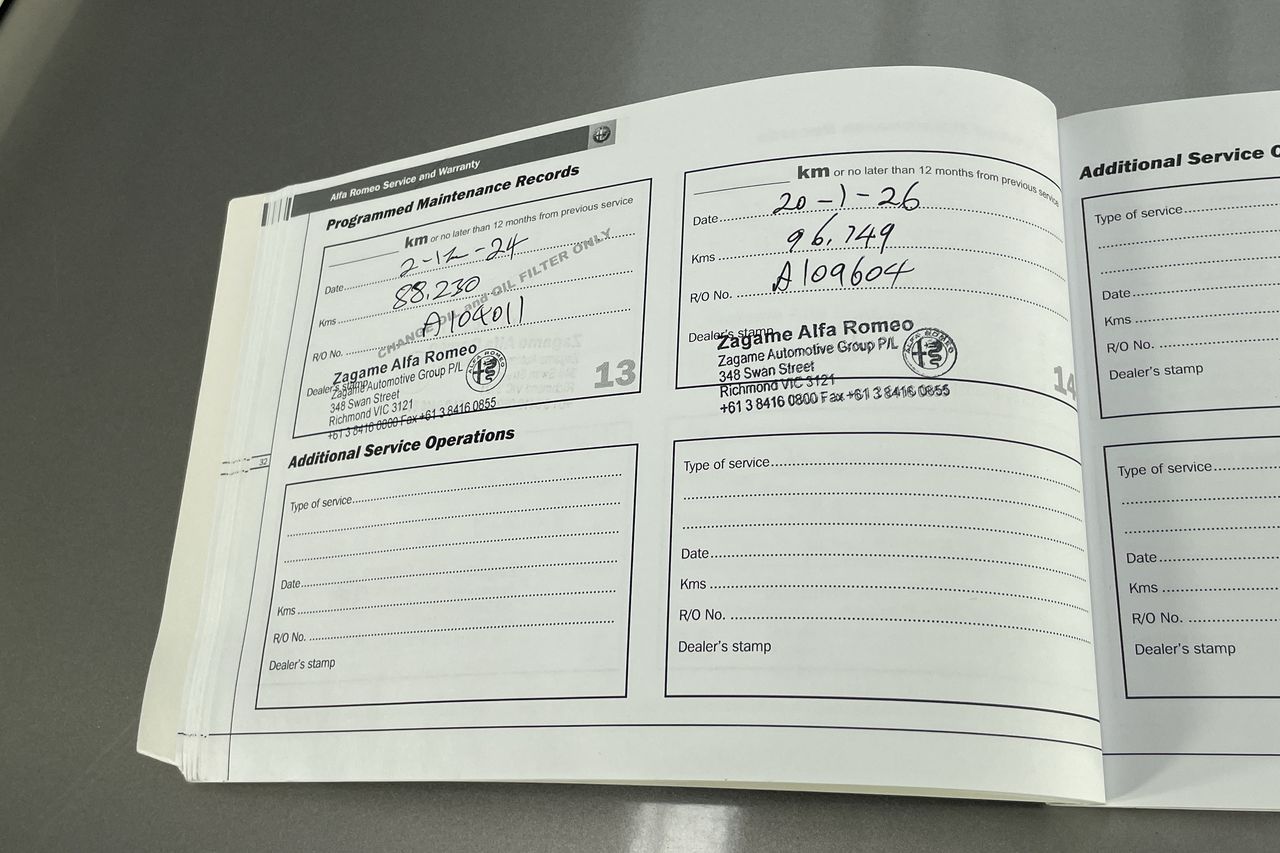 Alfa Romeo Service and Warranty
Programmed Maintenance Records
km or no later than 12 months from previous service
Date 2-12-24
CHANGE OIL and OIL FILTER ONLY
Kms 88,230
R/O No. A104011
Dealer's stamp
Zagame Alfa Romeo
Zagame Automotive Group P/L
348 Swan Street
Richmond VIC 3121
+61 3 8416 0800 Fax +61 3 8416 0855
ALFA ROMEO
13
km or no later than 12 months from previous service
Date 20-1-26
Kms 96,749
R/O No. A109604
Dealer's stamp
Zagame Alfa Romeo
Zagame Automotive Group P/L
348 Swan Street
Richmond VIC 3121
+61 3 8416 0800 Fax +61 3 8416 0855
ALFA ROMEO
14
32
Additional Service Operations
Type of service
Date
Kms
R/O No.
Dealer's stamp
Type of service
Date
Kms
R/O No.
Dealer's stamp
Additional Service
Type of service
Date
Kms
R/O No.
Dealer's stamp
Type of service
Date
Kms
R/O No.
Dealer's stamp